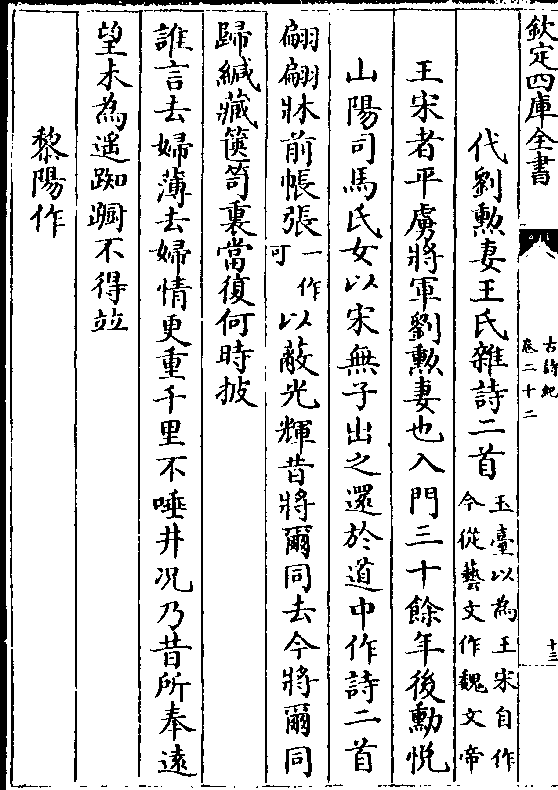 欽定四庫全書
古詩紀
卷二十二
十三
代劉勲妻王氏雜詩二首
玉臺以為王宋自作
今從藝文作魏文帝
王宋者平虜將軍劉勲妻也入門三十餘年後勲悦
山陽司馬氏女以宋無子出之還於道中作詩二首
翩翩牀前帳張
一作
可
以蔽光輝昔將爾同去今將爾同
歸緘藏篋笥裏當復何時披
誰言去婦薄去婦情更重千里不唾井况乃昔所奉逺
望未為遥踟蹰不得竝
黎陽作